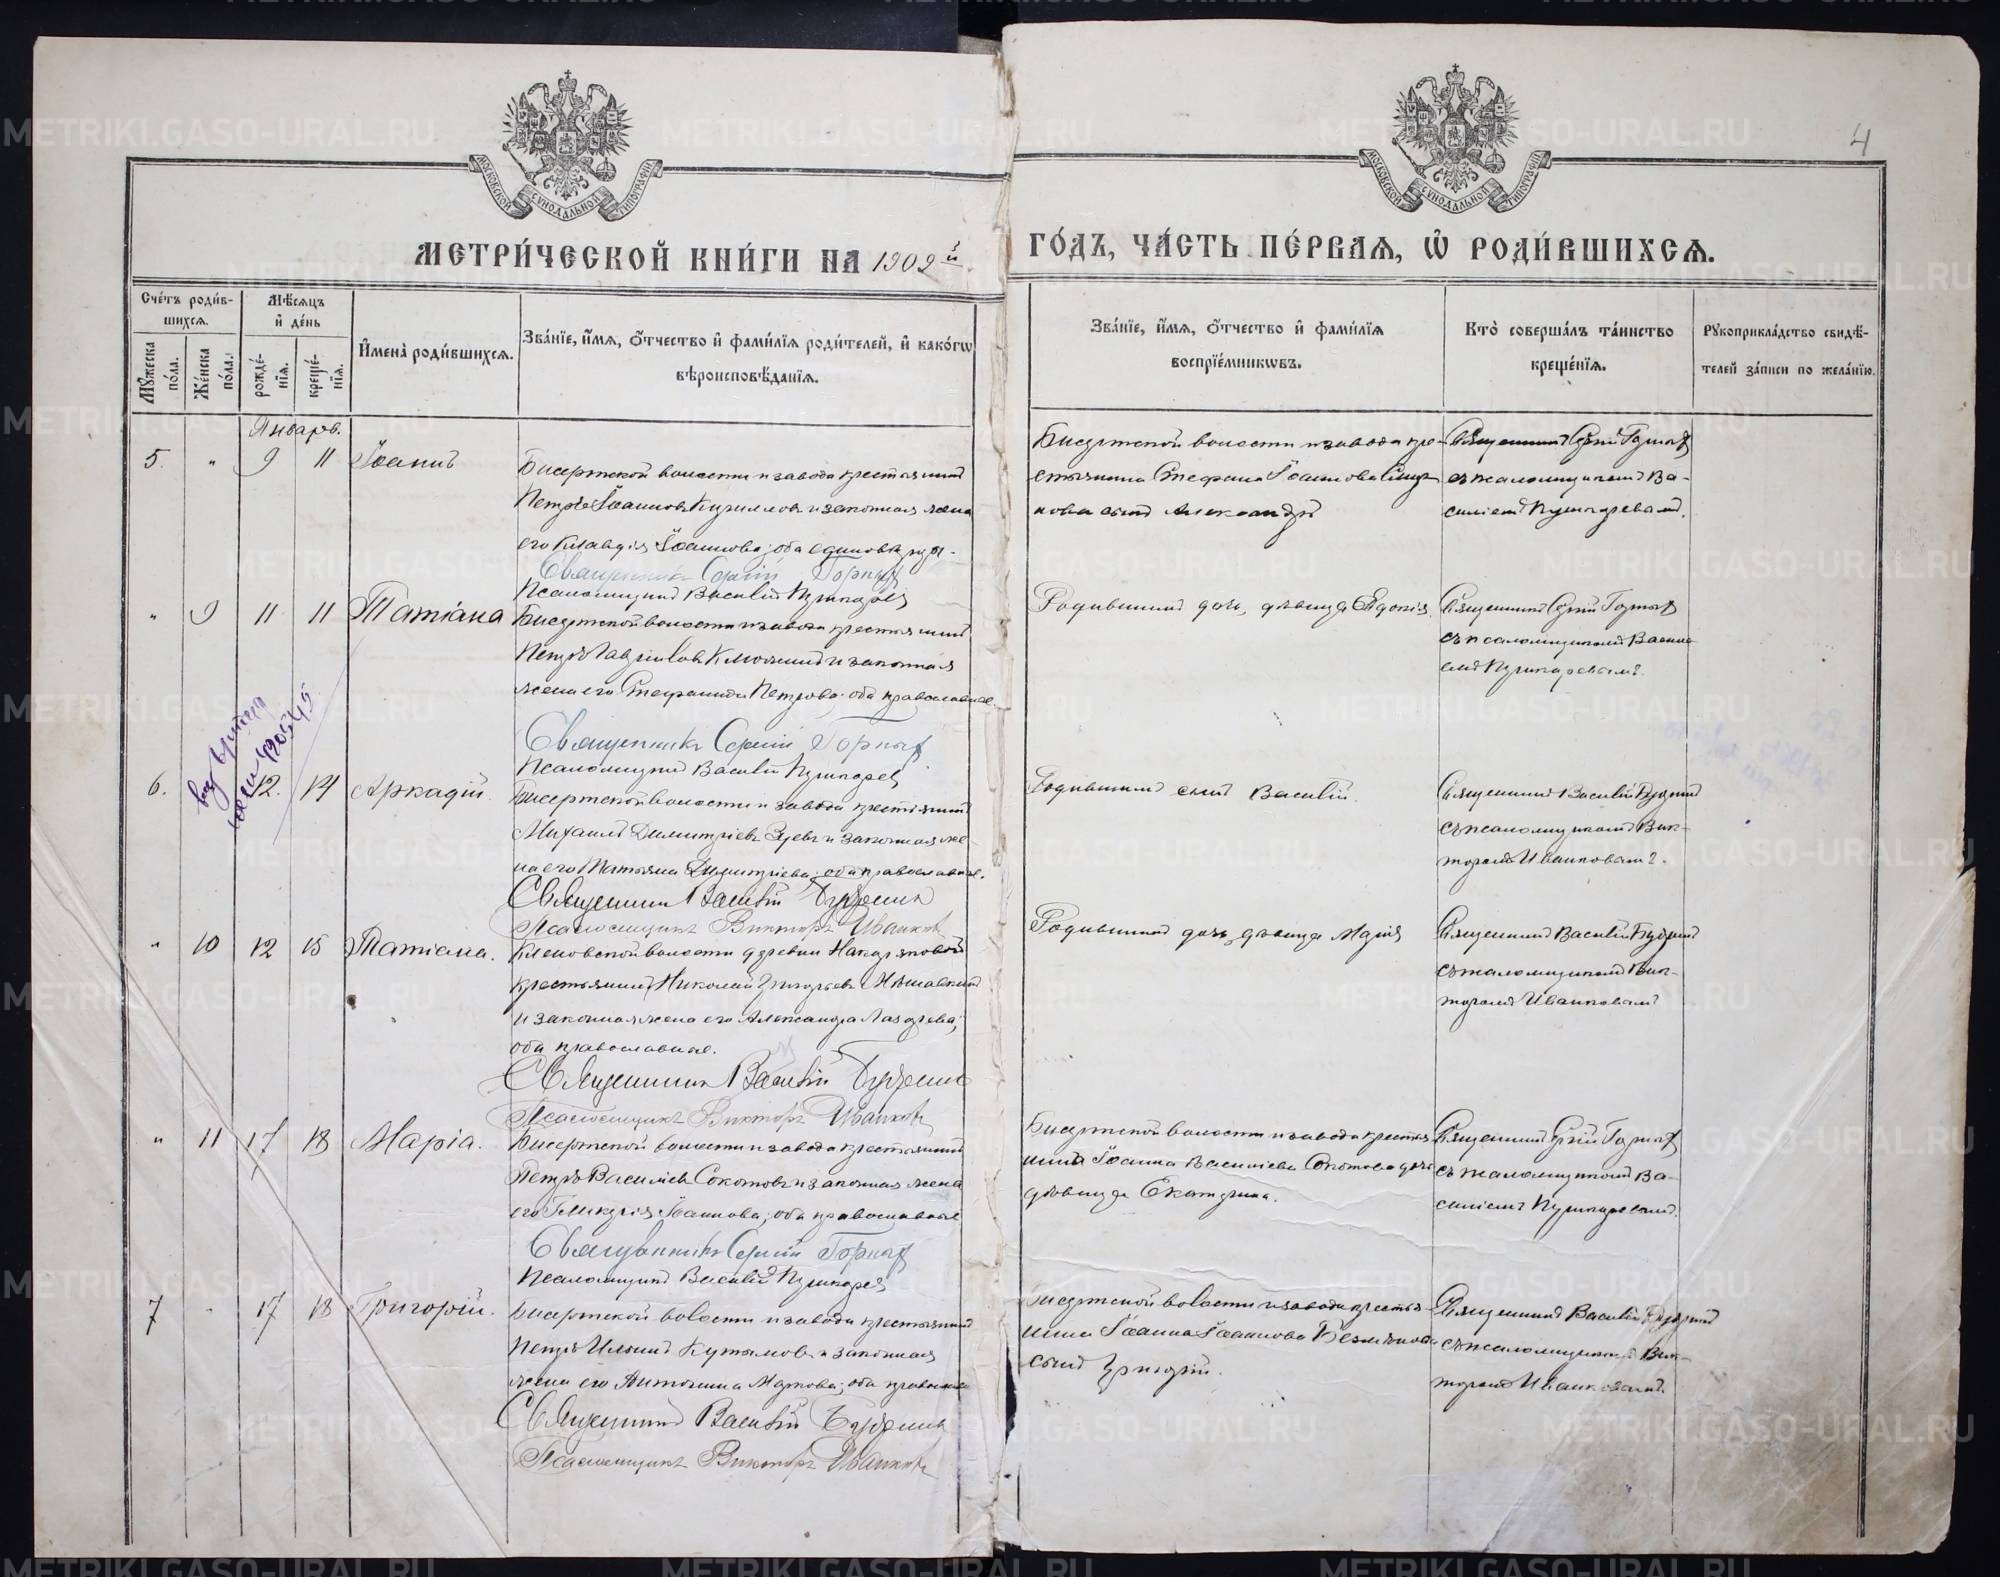 МОСКОВСКОЙ СѴНОДАЛЬНОЙ ТИПОГРАФІИ
МОСКОВСКОЙ СѴНОДАЛЬНОЙ ТИПОГРАФІИ
4
МЕТРИ́ЧЕСКОЙ КНИ́ГИ НА 1902й
ГО́ДЪ, ЧА́СТЬ ПЕ́РВАЯ, Ѡ҆ РОДИ́ВШИХСЯ.
Сче́тъ роди́в-
шихся.
Мѣ́сяцъ
и҆ де́нь
И҆мена̀ роди́вшихся.
Зва́нїе, и҆́мя, ѻ҆́тчество и҆ фами́лїя роди́телей, и҆ како́гѡ
вѣроисповѣ́данїя.
Мꙋ́жеска по́ла.
Же́нска по́ла.
рожде́-нїя.
креще́-нїя.
Зва́нїе, и҆́мя, ѻ҆́тчество и҆ фами́лїя
воспрїе́мникѡвъ.
Кто̀ соверша́лъ та́инство
креще́нїя.
Рꙋкоприкла́дство свидѣ́-
телей за́писи по жела́нїю.
Января.
5. " 9 11 Іоаннъ
Бисертской волости и завода крестьянинъ
Петръ Іоанновъ Кирилловъ и законная жена
его Клавдія Іоаннова; оба единовѣрцы.
Священникъ Сергій Горныхъ
Псаломщикъ Василій Пушкаревъ
Бисертской волости и завода кре-
стьянина Стефана Іоаннова
сынъ Александръ
Священникъ Сергій Горныхъ
съ псаломщикомъ Ва-
силіемъ Пушкаревымъ.
" 9 11 11 Татіана
Бисертской волости и завода крестьянинъ
Петръ Гавріиловъ Ключинъ и законная
жена его Стефанида Петрова; оба православные.
Священникъ Сергій Горныхъ
Псаломщикъ Василій Пушкаревъ
Родившаго дочь, дѣвица Евдокія.
Священникъ Сергій Горныхъ
съ псаломщикомъ Васили-
емъ Пушкаревымъ.
6. 12. 14 Аркадій.
Бисертской волости и завода крестьянинъ
Михаилъ Димитріевъ Зуевъ и законная же-
на его Татьяна Димитріева; оба православные.
Священникъ Василій
Псаломщикъ Викторъ Иванковъ
Родившаго сынъ Василій.
Священникъ Василій
съ псаломщикомъ Вик-
торомъ Иванковымъ.
" 10 12 15 Татіана.
Кленовской волости деревни Накоряковой
крестьянинъ Николай Григорьевъ
и законная жена его Александра Лазарева;
оба православные.
Священникъ Василій
Псаломщикъ Викторъ Иванковъ
Родившаго дочь, дѣвица Марія
Священникъ Василій
съ псаломщикомъ Вик-
торомъ Иванковымъ
" 11 17 18 Марія.
Бисертской волости и завода крестьянинъ
Петръ Василіевъ Сокотовъ и законная жена
его Гликерія Іоаннова; оба православные
Священникъ Сергій Горныхъ
Псаломщикъ Василій Пушкаревъ
Бисертской волости и завода крестья-
нина Іоанна Василіева Сокотова дочь
дѣвица Екатерина.
Священникъ Сергій Горныхъ
съ псаломщикомъ Ва-
силіемъ Пушкаревымъ.
7 17 18 Григорій.
Бисертской волости и завода крестьянинъ
Петръ Ильинъ Кутымовъ и законная
жена его Антонина Маркова; оба православные
Священникъ Василій
Псаломщикъ Викторъ Иванковъ
Бисертской волости и завода крестья-
нина Іоанна Іоаннова
сынъ Григорій.
Священникъ Василій
съ псаломщикомъ Вик-
торомъ Иванковымъ.
METRIKI.GASO-URAL.RU